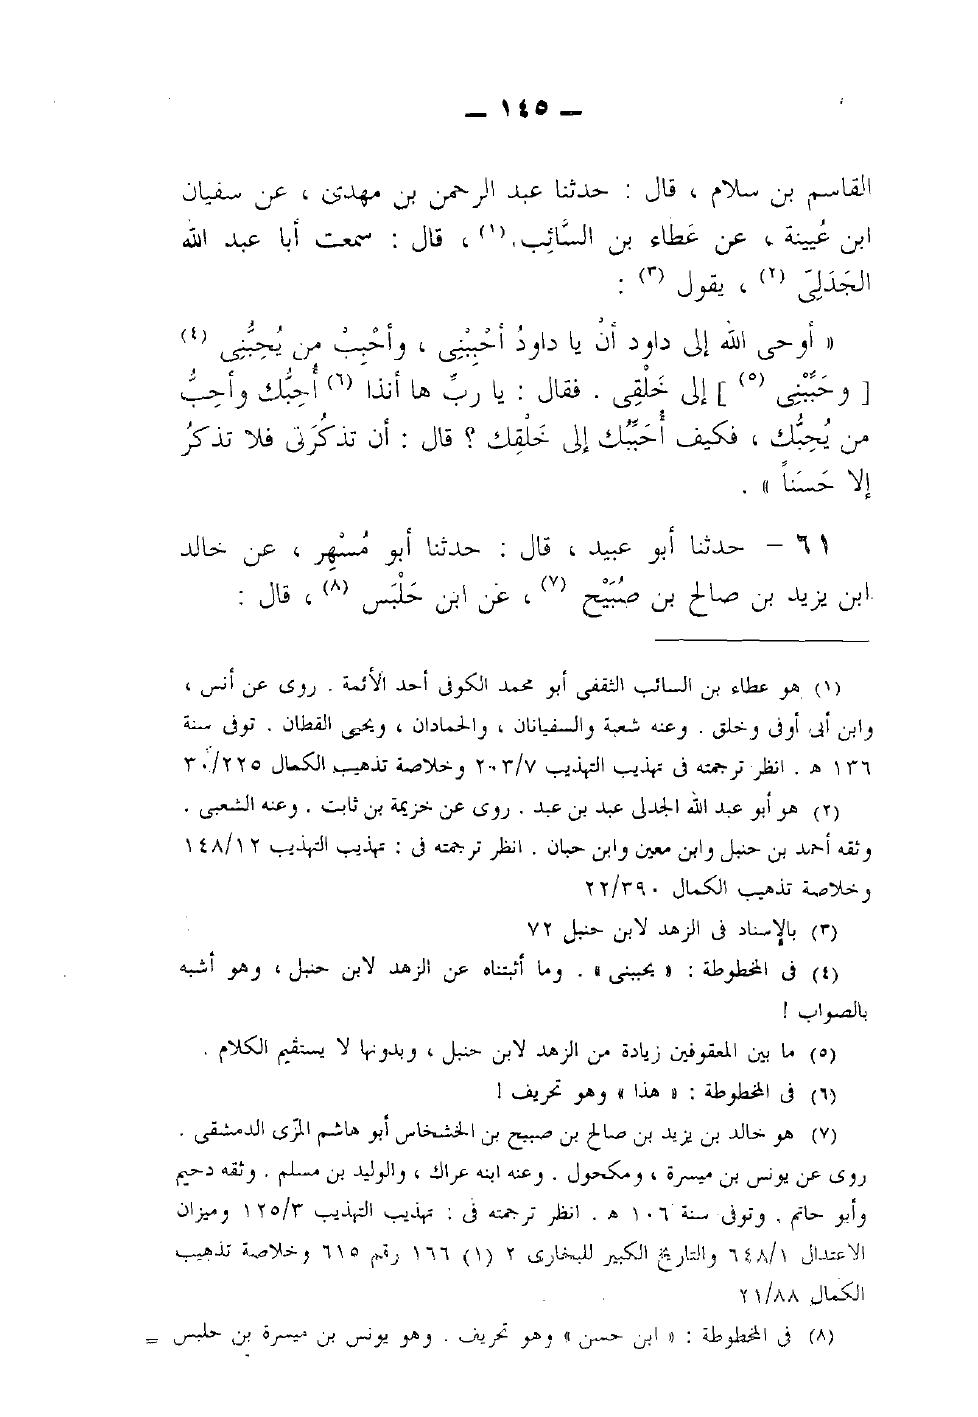 ـ ١٤٥ ـ
القاسم بن سلام ، قال : حدثنا عبد الرحمن بن مهدى ، عن سفيان
ابن عُيينة ، عن عَطاء بن السَّائِب (١) ، قال : سمعت أبا عبد الله
الجَدَلِىّ (٢) ، يقول (٣) :
« أوحى الله إلى داود أنْ يا داودُ أحْبِبْنِى ، وأحْبِبْ من يُحِبُّنِى (٤)
[ وحَبِّبْنِى (٥) ] إلى خَلْقِى . فقال : يا ربِّ ها أنذا (٦) أُحِبُّك وأحِبُّ
من يُحِبُّك ، فكيف أُحَبِّبُك إلى خَلْقِك ؟ قال : أن تذكُرَنى فلا تذكرُ
إلا حَسَناً » .
٦١ – حدثنا أبو عبيد ، قال : حدثنا أبو مُسْهِر ، عن خالد
ابن يزيد بن صالح بن صُبَيْح (٧) ، عن ابن حَلْبَس (٨) ، قال :
(١) هو عطاء بن السائب الثقفى أبو محمد الكوفى أحد الأئمة . روى عن أنس ،
وابن أبى أوفى وخلق . وعنه شعبة والسفيانان ، والحمادان ، ويحيى القطان . توفى سنة
١٣٦ هـ . انظر ترجمته فى تهذيب التهذيب ٢٠٣/٧ وخلاصة تذهيب الكمال ٣٠/٢٢٥
(٢) هو أبو عبد الله الجدلى عبد بن عبد . روى عن خزيمة بن ثابت . وعنه الشعبى .
وثقه أحمد بن حنبل وابن معين وابن حبان . انظر ترجمته فى : تهذيب التهذيب ١٤٨/١٢
وخلاصة تذهيب الكمال ٢٢/٣٩٠
(٣) بالإسناد فى الزهد لابن حنبل ٧٢
(٤) فى المخطوطة : « يحببنى » . وما أثبتناه عن الزهد لابن حنبل ، وهو أشبه
بالصواب !
(٥) ما بين المعقوفين زيادة من الزهد لابن حنبل ، وبدونها لا يستقيم الكلام .
(٦) فى المخطوطة : « هذا » وهو تحريف !
(٧) هو خالد بن يزيد بن صالح بن صبيح بن الخشخاس أبو هاشم المرّى الدمشقى .
روى عن يونس بن ميسرة ، ومكحول . وعنه ابنه عراك ، والوليد بن مسلم . وثقه دحيم
وأبو حاتم . وتوفى سنة ١٠٦ هـ . انظر ترجمته فى : تهذيب التهذيب ١٢٥/٣ وميزان
الاعتدال ٦٤٨/١ والتاريخ الكبير للبخارى ٢ (١) ١٦٦ رقم ٦١٥ وخلاصة تذهيب
الكمال ٢١/٨٨
(٨) فى المخطوطة : « ابن حسن » وهو تحريف . وهو يونس بن ميسرة بن حلبس =